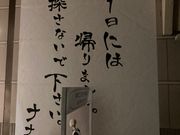 1日には
帰ります。
探さないで下さい
ナナ